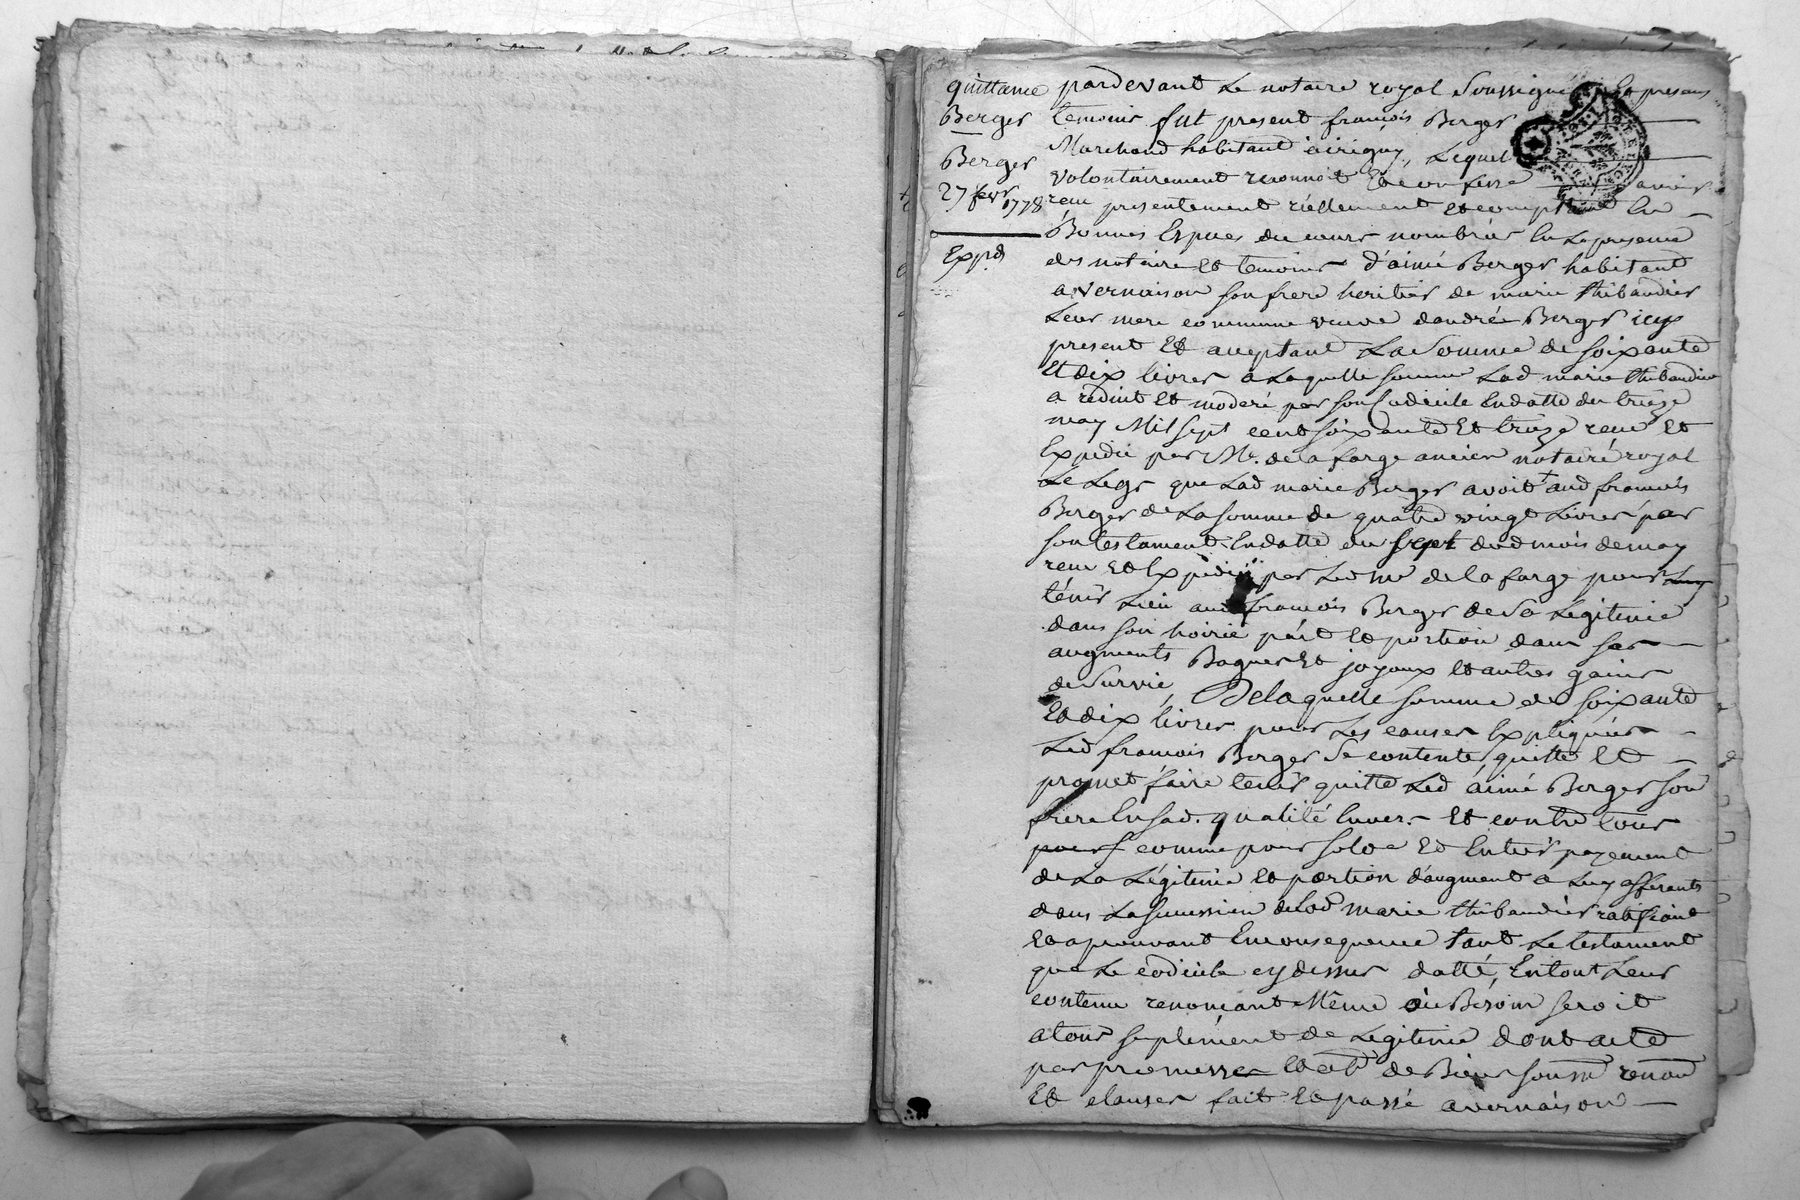 quittance
Berger
Berger
27 fevr 1778
Expd
pardevant Le notaire royal Soussigné Et presens
temoins fut present francois Berger
Marchand habitant a irigny, Lequel
volontairement reconnoit Et confesse avoir
recu presentement réellement et comptant En
Bonnes Espces du cours nombrées En La presence
des notaire Et temoins d'aimé Berger habitant
a vernaison son frere heritier de marie thibaudier
Leur mere commune veuve d'andré Berger icy
present Et aceptant La Somme de soixante
Et dix livres a Laquelle somme Lad marie thibaudier
a reduit Et moderé par son Codicile En datte du treize
may Mil sept cent soixante Et treize receu Et
Expedié par Me. de la farge ancien notaire royal
Le Legs que Lad marie Berger avoit aud francois
Berger de La somme de quatre vingt Livres par
son testament En datte du sept dud mois de may
receu Et Expedié par Led me de la farge pour Luy
tenir Lieu aud francois Berger de Sa Légitime
dans son hoirie part Et portion dans ses
augments Bagues Et joyaux Et autres gains
de Survie, De laquelle somme de soixante
Et dix livres pour Les causes Expliquées
Led francois Berger Se contente, quitte Et
promet faire tenir quitte Led aimé Berger son
frere En sad. qualité Envers Et contre tous
comme pour solde Et Entier payement
de La Légitime Et portion d'augment a Luy afferants
dans La succession de Lad marie thibaudier ratifiant
Et aprouvant En consequence tant Le testament
que Le codicile cy dessus datté, En tout Leur
contenu renonçant Même ou Besoin seroit
a tous suplement de Légitime dont acte
par promesses Et obn de Biens soumn renon
Et clauses fait Et passé a vernaison